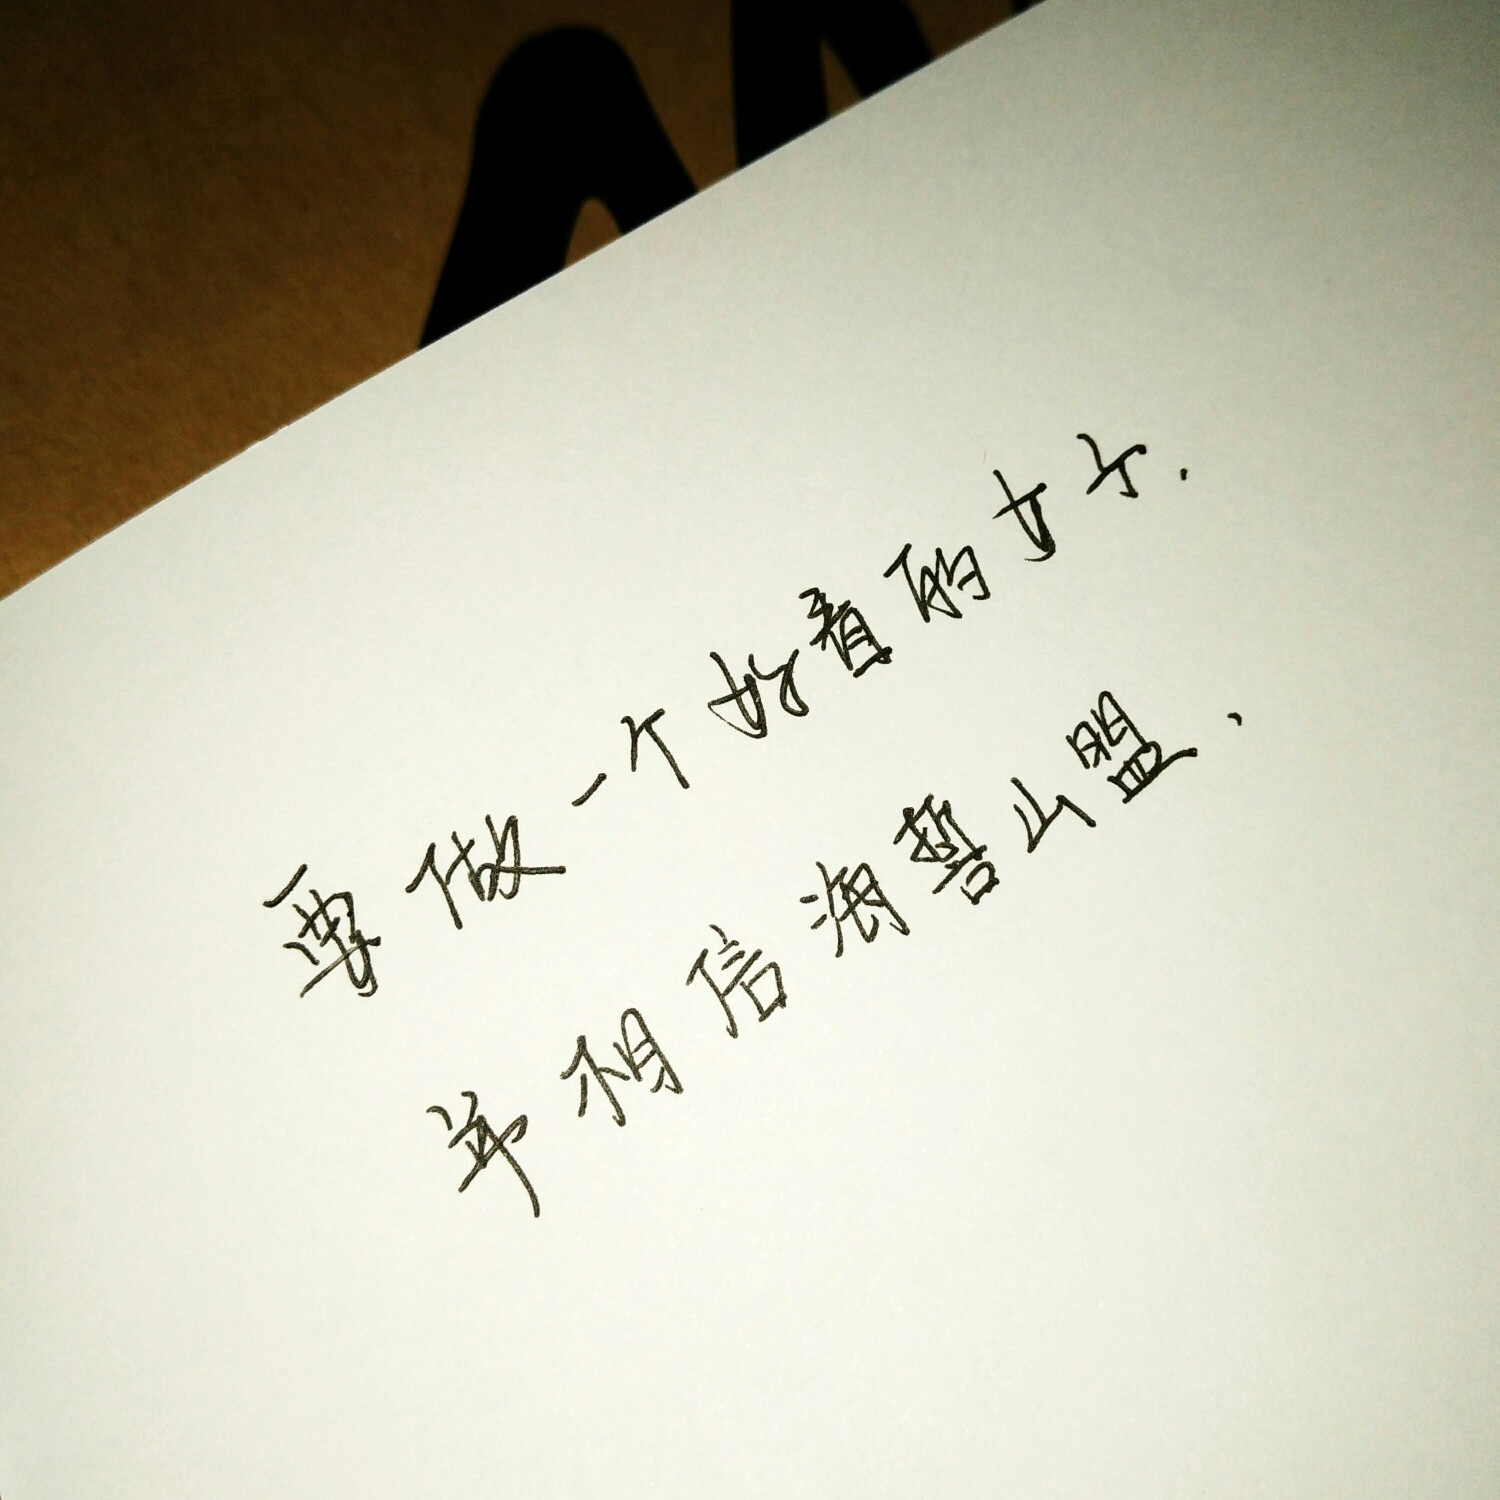 要做一个好看的女子.
并相信海誓山盟、